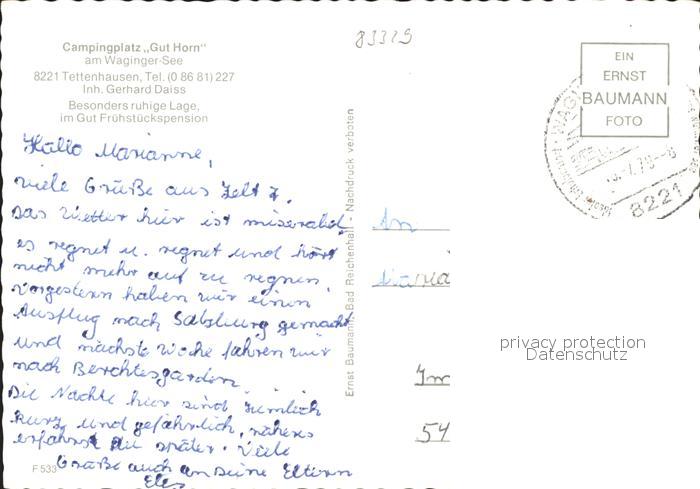 Campingplatz „Gut Horn"
am Waginger-See
8221 Tettenhausen, Tel. (0 86 81) 227
Inh. Gerhard Daiss
Besonders ruhige Lage,
im Gut Frühstückspension
83329
EIN
ERNST
BAUMANN
FOTO
8221
Hallo Marianne,
viele Grüße aus Zelt 7.
Das Wetter hier ist miserabel,
es regnet u. regnet und hört
nicht mehr auf zu regnen.
Vorgestern haben wir einen
Ausflug nach Salzburg gemacht
und nächste Woche fahren wir
nach Berchtesgarden.
Die Nächte hier sind ziemlich
kurz und gefährlich, näheres
erfährst du später. Viele
Grüße auch an Deine Eltern
F 533
Ernst Baumann, Bad Reichenhall - Nachdruck verboten
An
Im
54
privacy protection
Datenschutz